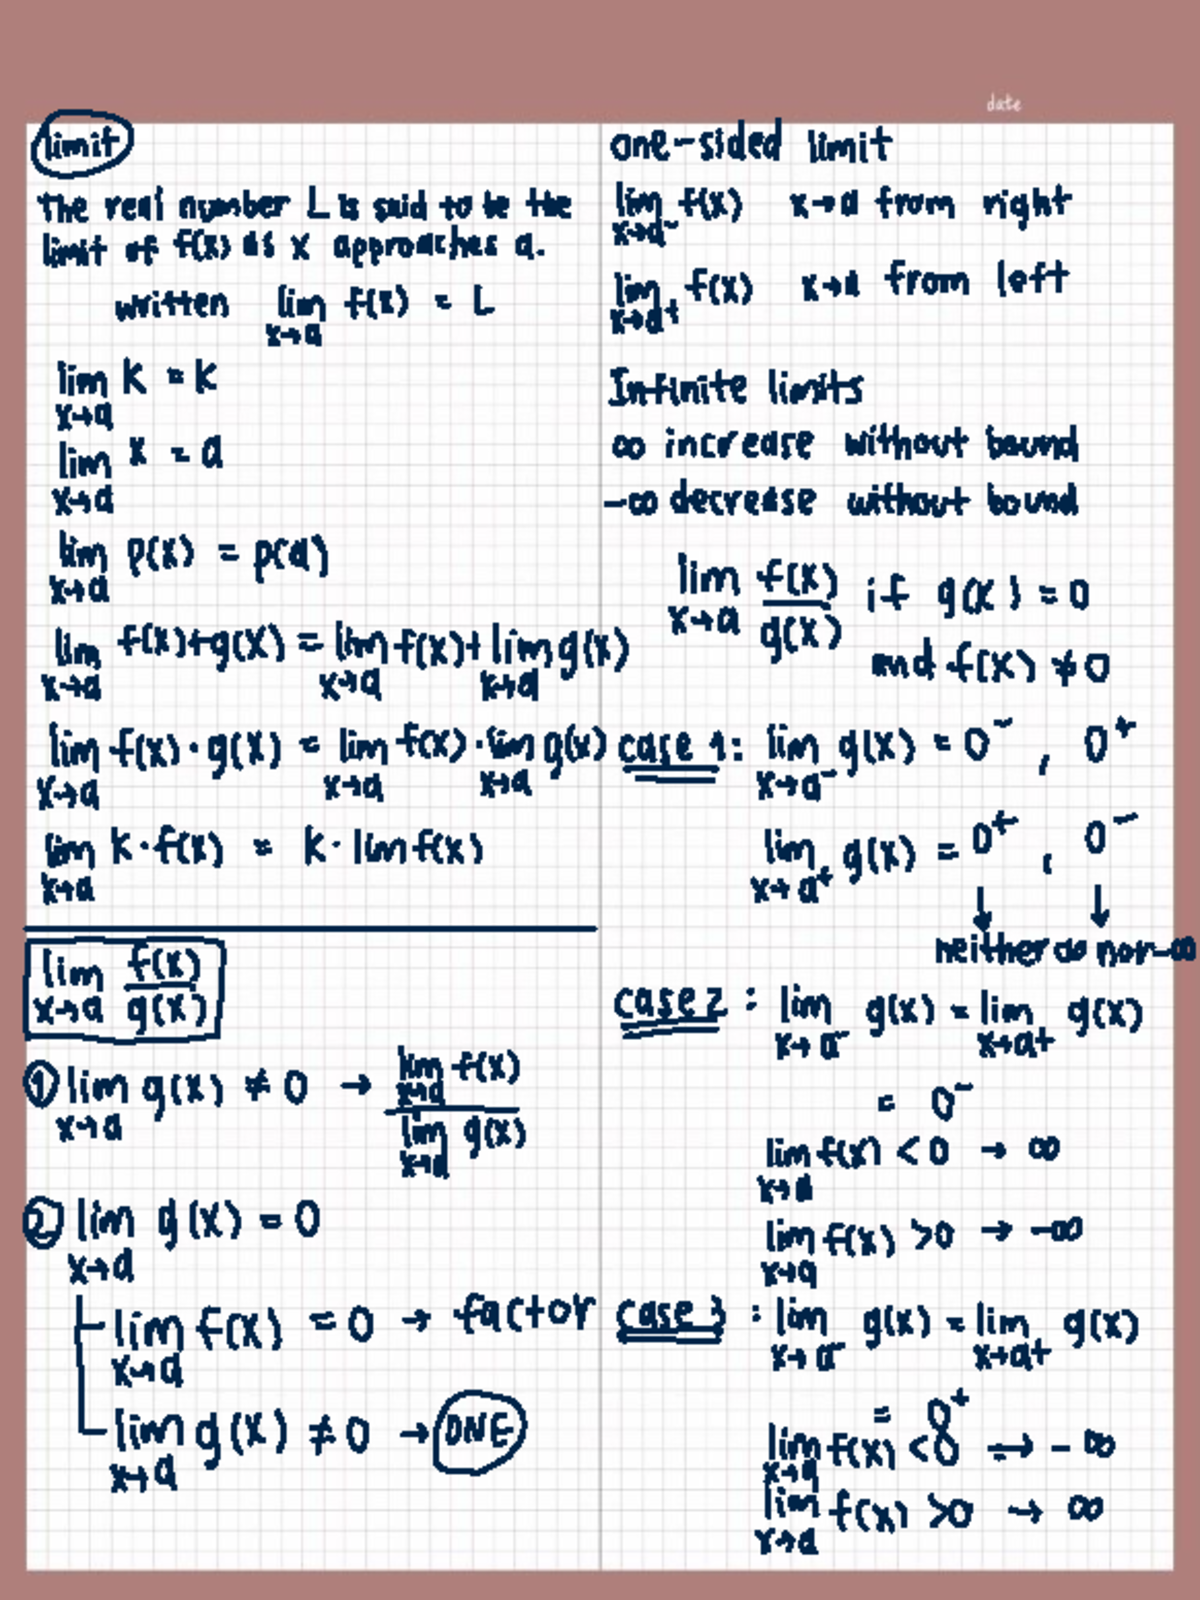 date
limit
The real number L is said to be the
limit of f(x) as x approaches a.
written lim x→a f(x) = L
lim x→a k = k
lim x→a x = a
lim x→a p(x) = p(a)
lim x→a f(x)+g(x) = lim x→a f(x) + lim x→a g(x)
lim x→a f(x)·g(x) = lim x→a f(x)·lim x→a g(x)
lim x→a k·f(x) = k·lim f(x)
lim x→a f(x)/g(x)
① lim x→a g(x) ≠ 0 → lim x→a f(x) / lim x→a g(x)
② lim x→a g(x) = 0
lim x→a f(x) = 0 → factor
lim x→a g(x) ≠ 0 → DNE
one-sided limit
lim x→a⁻ f(x) x→a from right
lim x→a⁺ f(x) x→a from left
Infinite limits
∞ increase without bound
-∞ decrease without bound
lim x→a f(x)/g(x) if g(x) = 0
and f(x) ≠ 0
case 1: lim x→a⁻ g(x) = 0⁻ , 0⁺
lim x→a⁺ g(x) = 0⁺ , 0⁻
↓ ↓
neither ∞ nor -∞
case 2 : lim x→a⁻ g(x) = lim x→a⁺ g(x)
= 0⁻
lim x→a f(x) < 0 → ∞
lim x→a f(x) >0 → -∞
case 3 : lim x→a⁻ g(x) = lim x→a⁺ g(x)
= 0⁺
lim x→a f(x) <0 → -∞
lim x→a f(x) >0 → ∞